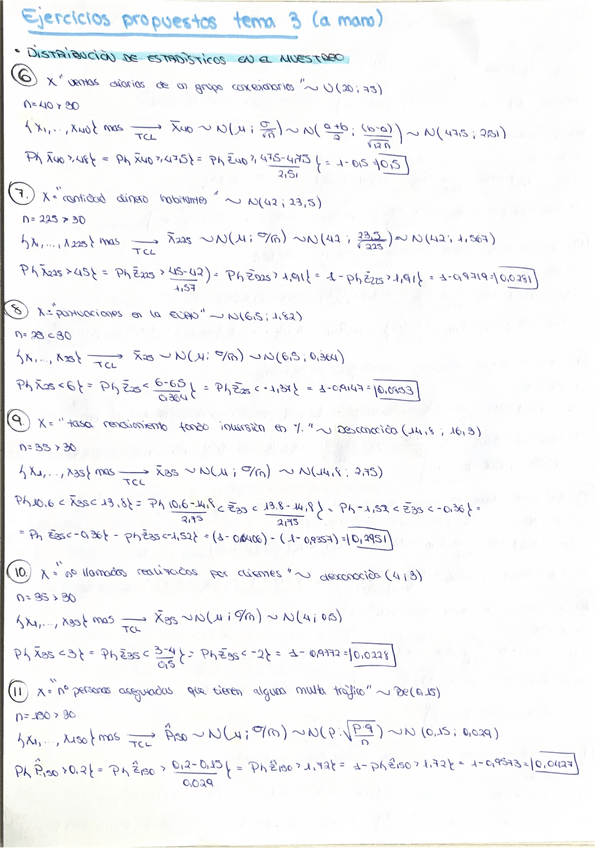 Ejercicios propuestos tema 3 (a mano)
• DISTRIBUCIÓN DE ESTADÍSTICOS EN EL MUESTREO
⑥ X "ventas diarias de un grupo concesionarios" ~ U(20; 75)
n=40>30
{X₁,...,X₄₀} mas →TCL X̄₄₀ ~ N(μ; σ/√n) ~ N((a+b)/2; (b-a)/√12n) ~ N(47,5; 2,51)
P{X̄₄₀>,48} = P{X̄₄₀>,47,5} = P{Z̄₄₀>, (47,5-4,75)/2,51} = 1-0,5=0,5
⑦. X="cantidad dinero habitantes" ~ N(42; 23,5)
n=225>30
{X₁,...,X₂₂₅} mas →TCL X̄₂₂₅ ~ N(μ; σ/√n) ~ N(42; 23,5/√225) ~ N(42; 1,567)
P{X̄₂₂₅>45} = P{Z̄₂₂₅> (45-42)/1,57} = P{Z̄₂₂₅>1,91} = 1-P{Z̄₂₂₅>1,91} = 1-0,9719=0,0281
⑧ X="puntuaciones en la EVAU" ~ N(6,5; 1,82)
n=25<30
{X₁,..., X₂₅} →TCL X̄₂₅ ~ N(μ; σ/√n) ~ N(6,5; 0,364)
P{X̄₂₅<6} = P{Z̄₂₅< (6-6,5)/0,364} = P{Z̄₂₅<-1,37} = 1-0,9147=0,0853
⑨. X="tasa rendimiento fondo inversión en %" ~ Desconocida (14,8; 16,3)
n=35>30
{X₁,..., X₃₅} mas →TCL X̄₃₅ ~ N(μ; σ/√n) ~ N(14,8; 2,75)
P{10,6 < X̄₃₅<13,8} = P{(10,6-14,8)/2,75 < Z̄₃₅ < (13,8-14,8)/2,75} = P{-1,52 < Z̄₃₅ < -0,36} =
= P{Z̄₃₅<-0,36} - P{Z̄₃₅<-1,52} = (1-0,6406) - (1-0,9357)=0,2951
⑩. X="nº llamadas realizadas por clientes" ~ desconocida (4; 3)
n=35>30
{X₁,..., X₃₅} mas →TCL X̄₃₅ ~ N(μ; σ/√n) ~ N(4; 0,5)
P{X̄₃₅<3} = P{Z̄₃₅< (3-4)/0,5} = P{Z̄₃₅<-2} = 1-0,9772=0,0228
⑪ X="nº personas aseguradas que tienen alguna multa tráfico" ~ Be(0,15)
n=150>30
{X₁,..., X₁₅₀} mas →TCL P̂₁₅₀ ~ N(μ; σ/√n) ~ N(p; √(p·q/n)) ~ N (0,15; 0,029)
P{P̂₁₅₀>0,2} = P{Ẑ₁₅₀> (0,2-0,15)/0,029} = P{Ẑ₁₅₀>1,72} = 1-P{Ẑ₁₅₀>1,72} = 1-0,9573=0,0427